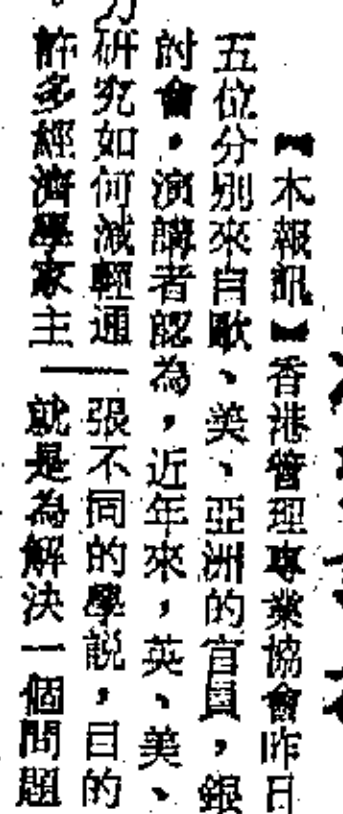 【本報訊】香港管理專業協會昨日
五位分別來自歐、美、亞洲的官員，銀
討會，演講者認為，近年來，英、美、
力研究如何減輕通
張不同的學説，目的
。許多經濟學家主
就是為解決一個問題